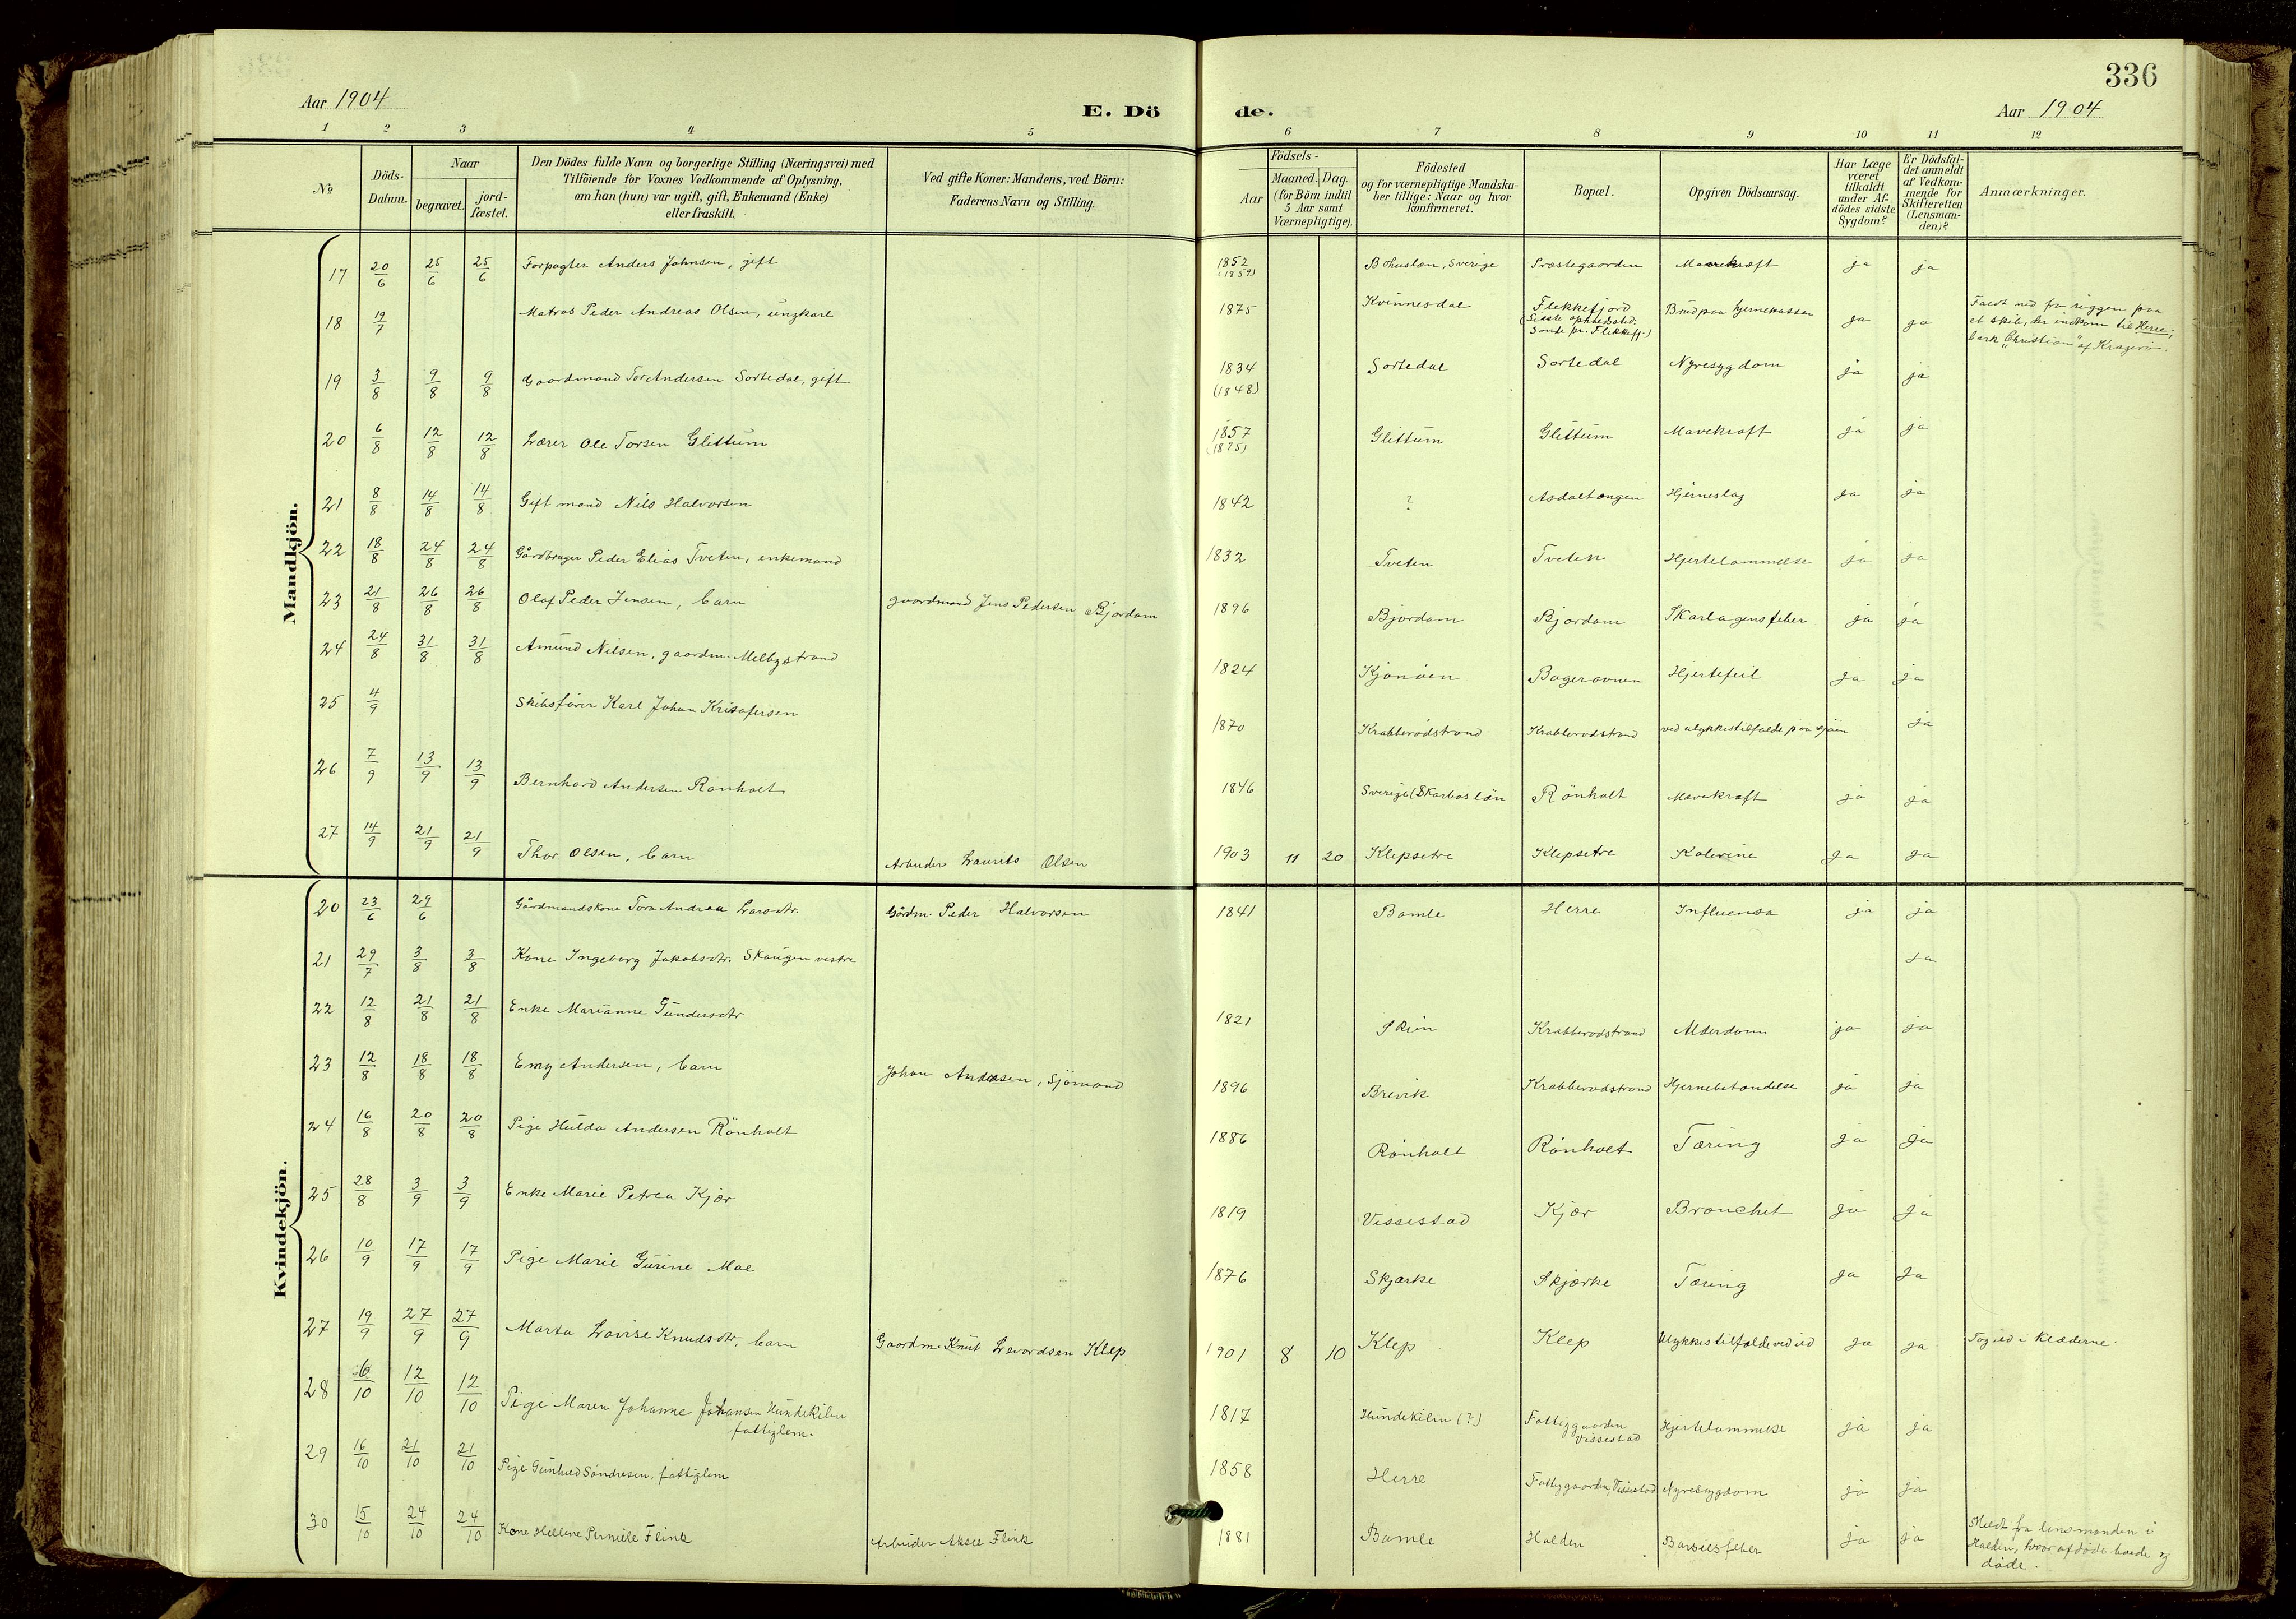 336
Aar 1904
E. Dö de.
Aar 1904
1 2 3 4 5 6 7 8 9 10 11 12
No
Döds-Datum.
Naar
begravet.
jord-fæstet.
Den Dödes fulde Navn og borgerlige Stilling (Næringsvei) med
Tilföiende for Voxnes Vedkommende af Oplysning,
om han (hun) var ugift, gift, Enkemand (Enke)
eller fraskilt.
Ved gifte Koner: Mandens, ved Börn:
Faderens Navn og Stilling.
Födsels-
Aar
Maaned. Dag.
(for Börn indtil
5 Aar samt
Værnepligtige).
Födested
og for værnepligtige Mandska-
ber tillige: Naar og hvor
konfirmeret.
Bopæl.
Opgiven Dödsaarsag.
Har Læge
været
tilkaldt
under Af-
dödes sidste
Sygdom?
Er Dödsfal-
det anmeldt
af Vedkom-
mende for
Skifteretten
(Lensman-
den)?
Anmærkninger.
Mandkjön.
17 20/6 25/6 25/6 Forpagter Anders Johnsen, gift 1852 (1859) Bohuslæn, Sverige Præstegaarden Mavekræft ja ja
18 19/7 Matros Peder Andreas Olsen, ungkarl 1875 Kvinnesdal Flekkefjord
(Sidste opholdssted:
Brud paa hjernekassen ja ja Faldt ned fra riggen paa
et skib, der indkom til Herre;
bark "Christian" af Kragerö.
19 3/8 9/8 9/8 Gaardmand Tor Andersen Sortedal, gift 1834 (1848) Sortedal Sortedal Nyresygdom ja ja
20 6/8 12/8 12/8 Lærer Ole Torsen Glittum 1857 (1875) Glittum Glittum Mavekræft ja ja
21 8/8 14/8 14/8 Gift mand Nils Halvorsen 1842 ? Asdaltangen Hjerneslag ja ja
22 18/8 24/8 24/8 Gårdbruger Peder Elias Tveten, enkemand 1832 Tveten Tveten Hjertelammelse ja ja
23 21/8 26/8 26/8 Olaf Peder Jensen, barn gaardmand Jens Pedersen Bjordam 1896 Bjordam Bjordam Skarlagensfeber ja ja
24 24/8 31/8 31/8 Amund Nilsen, gaardm. Melbystrand 1824 Kjönöen Bagerovnen Hjertefeil ja ja
25 4/9 Skibsförer Karl Johan Kristofersen 1870 Krabberödstrand Krabberödstrand ved ulykkestilfælde paa sjöen ja
26 7/9 13/9 13/9 Bernhard Andersen Rönholt 1846 Sverige (Skarbos län Rönholt Mavekræft ja ja
27 14/9 21/9 21/9 Thor Olsen, barn Arbeider Laurits Olsen 1903 11 20 Klepsetre Klepsetre Kolerine ja ja
Kvindekjön.
20 23/6 29/6 Gårdmandskone Tora Andrea Larsdtr. Gårdm. Peder Halvorsen 1841 Bamle Herre Influensa ja ja
21 29/7 3/8 3/8 Kone Ingeborg Jakobsdtr. Skaugen vestre ja
22 12/8 21/8 21/8 Enke Marianne Gundersdtr 1821 Skien Krabberödstrand Alderdom ja ja
23 12/8 18/8 18/8 Emy Andersen, barn Johan Andersen, Sjömand 1896 Brevik Krabberödstrand Hjernebetændelse ja ja
24 16/8 20/8 20/8 Pige Hulda Andersen Rönholt 1886 Rönholt Rönholt Tæring ja ja
25 28/8 3/9 3/9 Enke Marie Petrea Kjær 1819 Vissestad Kjær Bronchit ja ja
26 10/9 17/9 17/9 Pige Marie Gurine Moe 1876 Skjærke Skjærke Tæring ja ja
27 19/9 27/9 27/9 Marta Lovise Knudsdtr, barn Gaardm. Knut Levordsen Klep 1901 8 10 Klep Klep Ulykkestilfælde ved ild ja ja Tog ild i klæderne.
28 6/10 12/10 12/10 Pige Maren Johanne Johansen Hundekilen
fattiglem. 1817 Hundekilen (?) Fattiggaarden
Vissestad Hjertelammelse ja ja
29 16/10 21/10 21/10 Pige Gunhild Söndresen, fattiglem 1858 Herre Fattiggaarden, Vissestad Nyresygdom ja ja
30 15/10 24/10 24/10 Kone Hellene Pernille Flink Arbeider Aksel Flink 1881 Bamle Halden Barselsfeber ja ja Meldt fra lensmanden i
Halden, hvor afdöde boede og
döde.